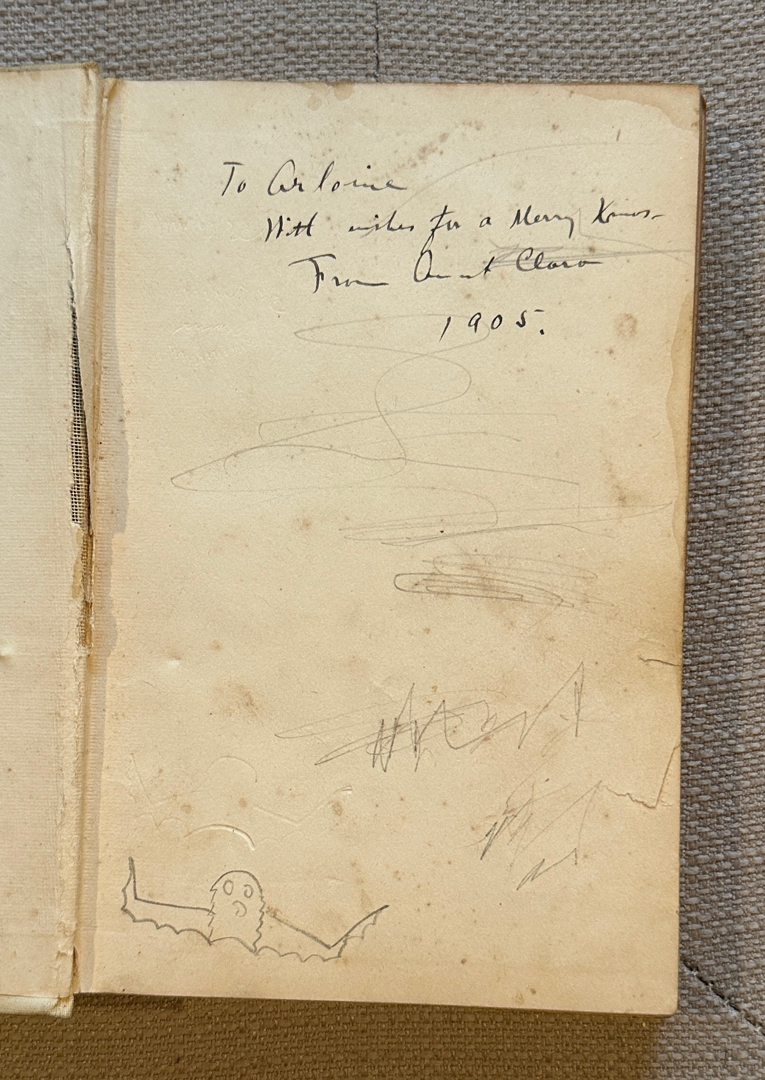 To Arloine
With wishes for a Merry Xmas-
From Aunt Clara
1905.